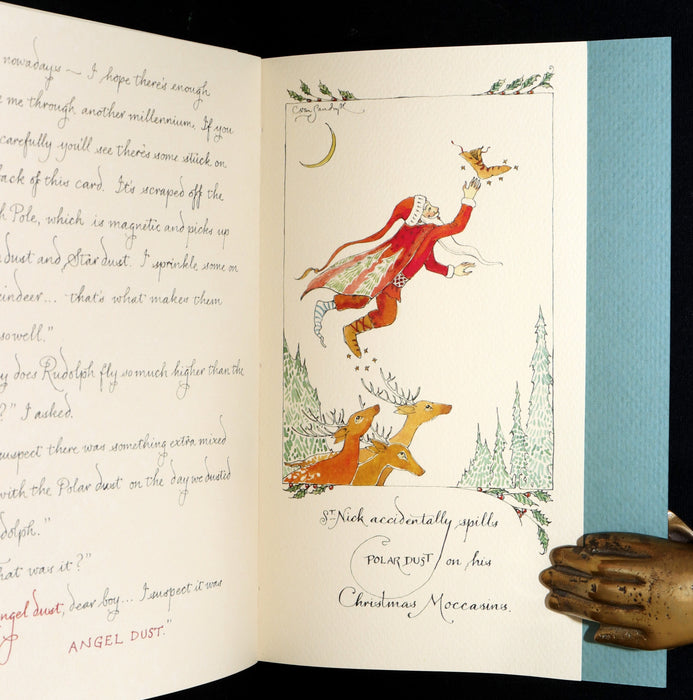 nowadays ~ I hope there's enough
me through another millennium. If you
carefully you'll see there's some stuck on
back of this card. It's scraped off the
Pole, which is magnetic and picks up
dust and Star dust. I sprinkle some on
reindeer... that's what makes them
so well."
does Rudolph fly so much higher than the
?" I asked.
suspect there was something extra mixed
with the Polar dust on the day we dusted
dolph."
hat was it?"
Angel dust, dear boy... I suspect it was
ANGEL DUST."
St. Nick accidentally spills
POLAR DUST on his
Christmas Moccasins.